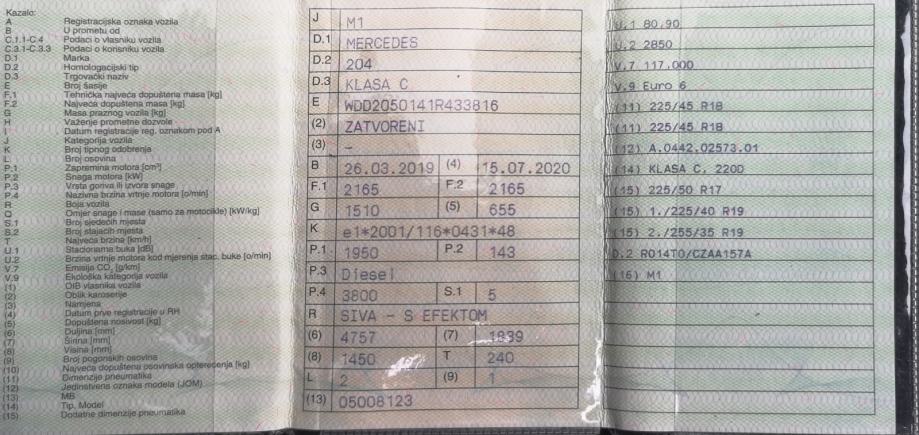 Kazalo:
A Registracijska oznaka vozila
B U prometu od
C.1.1-C.4 Podaci o vlasniku vozila
C.3.1-C.3.3 Podaci o korisniku vozila
D.1 Marka
D.2 Homologacijski tip
D.3 Trgovački naziv
E Broj šasije
F.1 Tehnička najveća dopuštena masa [kg]
F.2 Najveća dopuštena masa [kg]
G Masa praznog vozila [kg]
H Važenje prometne dozvole
I Datum registracije reg. oznakom pod A
J Kategorija vozila
K Broj tipnog odobrenja
L Broj osovina
P.1 Zapremina motora [cm³]
P.2 Snaga motora [kW]
P.3 Vrsta goriva ili izvora snage
P.4 Nazivna brzina vrtnje motora [o/min]
R Boja vozila
Q Omjer snage i mase (samo za motocikle) [kW/kg]
S.1 Broj sjedećih mjesta
S.2 Broj stajaćih mjesta
T Najveća brzina [km/h]
U.1 Stacionarna buka [dB]
U.2 Brzina vrtnje motora kod mjerenja stac. buke [o/min]
V.7 Emisija CO₂ [g/km]
V.9 Ekološka kategorija vozila
(1) OIB vlasnika vozila
(2) Oblik karoserije
(3) Namjena
(4) Datum prve registracije u RH
(5) Dopuštena nosivost [kg]
(6) Duljina [mm]
(7) Širina [mm]
(8) Visina [mm]
(9) Broj pogonskih osovina
(10) Najveća dopuštena osovinska opterećenja [kg]
(11) Dimenzije pneumatika
(12) Jedinstvena oznaka modela (JOM)
(13) MB
(14) Tip, Model
(15) Dodatne dimenzije pneumatika
J M1
D.1 MERCEDES
D.2 204
D.3 KLASA C
E WDD2050141R433816
(2) ZATVORENI
(3) -
B 26.03.2019 (4) 15.07.2020
F.1 2165 F.2 2165
G 1510 (5) 655
K e1*2001/116*0431*48
P.1 1950 P.2 143
P.3 Diesel
P.4 3800 S.1 5
R SIVA - S EFEKTOM
(6) 4757 (7) 1839
(8) 1450 T 240
L 2 (9) 1
(13) 05008123
U.1 80,90
U.2 2850
V.7 117.000
V.9 Euro 6
(11) 225/45 R18
(11) 225/45 R18
(12) A.0442.02573.01
(14) KLASA C, 2200
(15) 225/50 R17
(15) 1./225/40 R19
(15) 2./255/35 R19
D.2 R014T0/CZAA157A
(16) M1